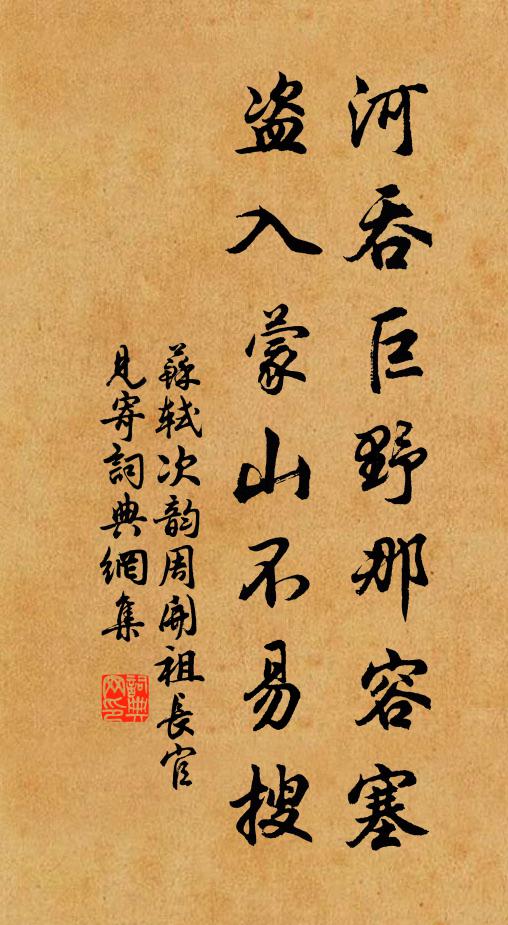 河吞巨野那容塞
盗入蒙山不易搜
蘇軾次韵周開祖長官
見寄詞典網集
詞典
网印